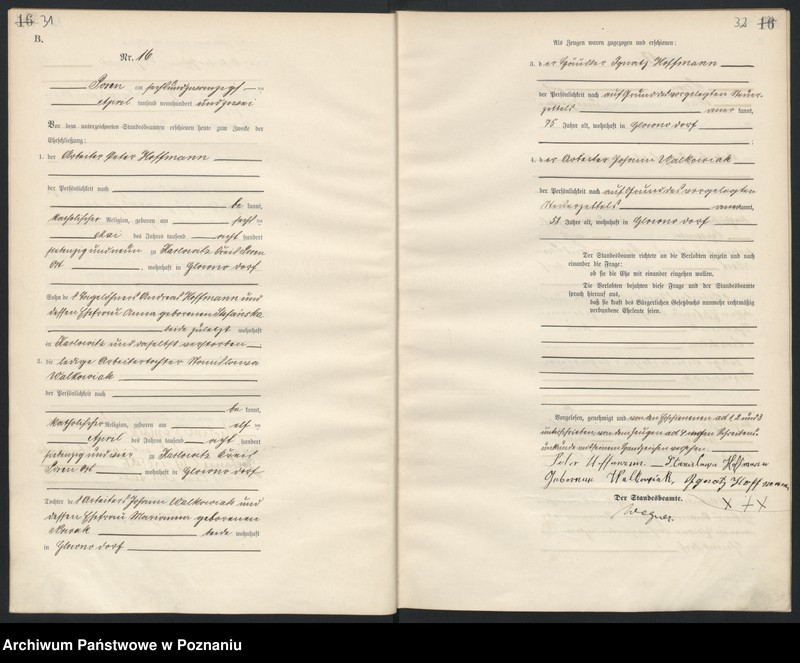 16 31
B.
Nr. 16
Posen am sechsundzwanzigsten
April tausend neunhundert und zwei
Vor dem unterzeichneten Standesbeamten erschienen heute zum Zwecke der
Eheschließung:
1. der Arbeiter Peter Hoffmann
der Persönlichkeit nach
be kannt,
katholischer Religion, geboren am
Mai des Jahres tausend acht hundert
zu Zazlowitz Kreis Posen
Ost, wohnhaft in Glowno dorf
Sohn des Tagelöhners Andreas Hoffmann und
dessen Ehefrau Anna geborenen
beide zuletzt wohnhaft
in Karlowitz und daselbst verstorben
2. die ledige Arbeitertochter Stanislawa
Walkowiak
der Persönlichkeit nach
be kannt,
katholischer Religion, geboren am elf ten
April des Jahres tausend acht hundert
siebenzig und vier zu Karlowitz Kreis
Posen Ost, wohnhaft in Glowno dorf
Tochter des Arbeiters Johann Walkowiak und
dessen Ehefrau Marianna geborenen
Nowak beide wohnhaft
in Glowno dorf
32 16
Als Zeugen waren zugezogen und erschienen:
3. der Häusler Ignatz Hoffmann
der Persönlichkeit nach auf Grund des vorgelegten Steuer-
zettels aner kannt,
75 Jahre alt, wohnhaft in Glowno dorf
;
4. der Arbeiter Johann Walkowiak
der Persönlichkeit nach auf Grund des vorgelegten
Steuerzettels anerkannt,
58 Jahre alt, wohnhaft in Glowno dorf
Der Standesbeamte richtete an die Verlobten einzeln und nach
einander die Frage:
ob sie die Ehe mit einander eingehen wollen.
Die Verlobten bejahten diese Frage und der Standesbeamte
sprach hierauf aus,
daß sie kraft des Bürgerlichen Gesetzbuchs nunmehr rechtmäßig
verbundene Eheleute seien.
Vorgelesen, genehmigt und von den Erschienenen ad 1 2 und 3
unterschrieben, von dem Zeugen ad 4 wegen Schreibens-
unkunde mit seinem Handzeichen versehen
Peter Hoffmann Stanisława Hoffmann
Geborene Walkowiak, Ignatz Hoffmann,
Der Standesbeamte. X + X
Wegner.
Archiwum Państwowe w Poznaniu